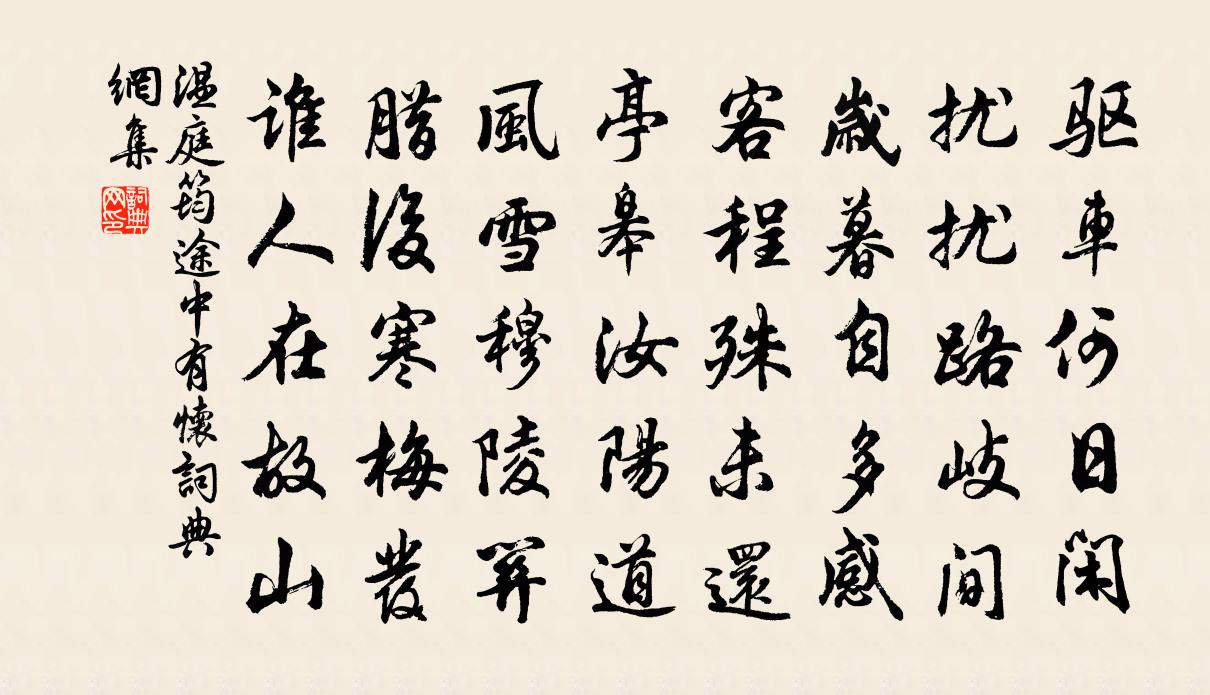 驱車何日閑
扰扰路岐間
歲暮自多感
客程殊未還
亭皋汝陽道
風雪穆陵關
腊後寒梅發
谁人在故山
温庭筠途中有懷詞典
網集
詞典
网印